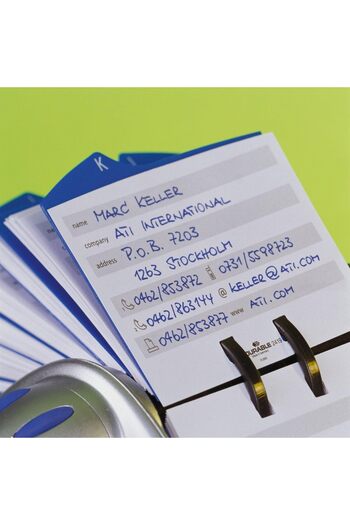 K
name MARC KELLER
company ATI INTERNATIONAL
address P.O.B. 7203
1263 STOCKHOLM
0462/853872 0731/5598723
0462/863144 @ KELLER@ATI.COM
0462/853877 www ATI.COM
DURABLE